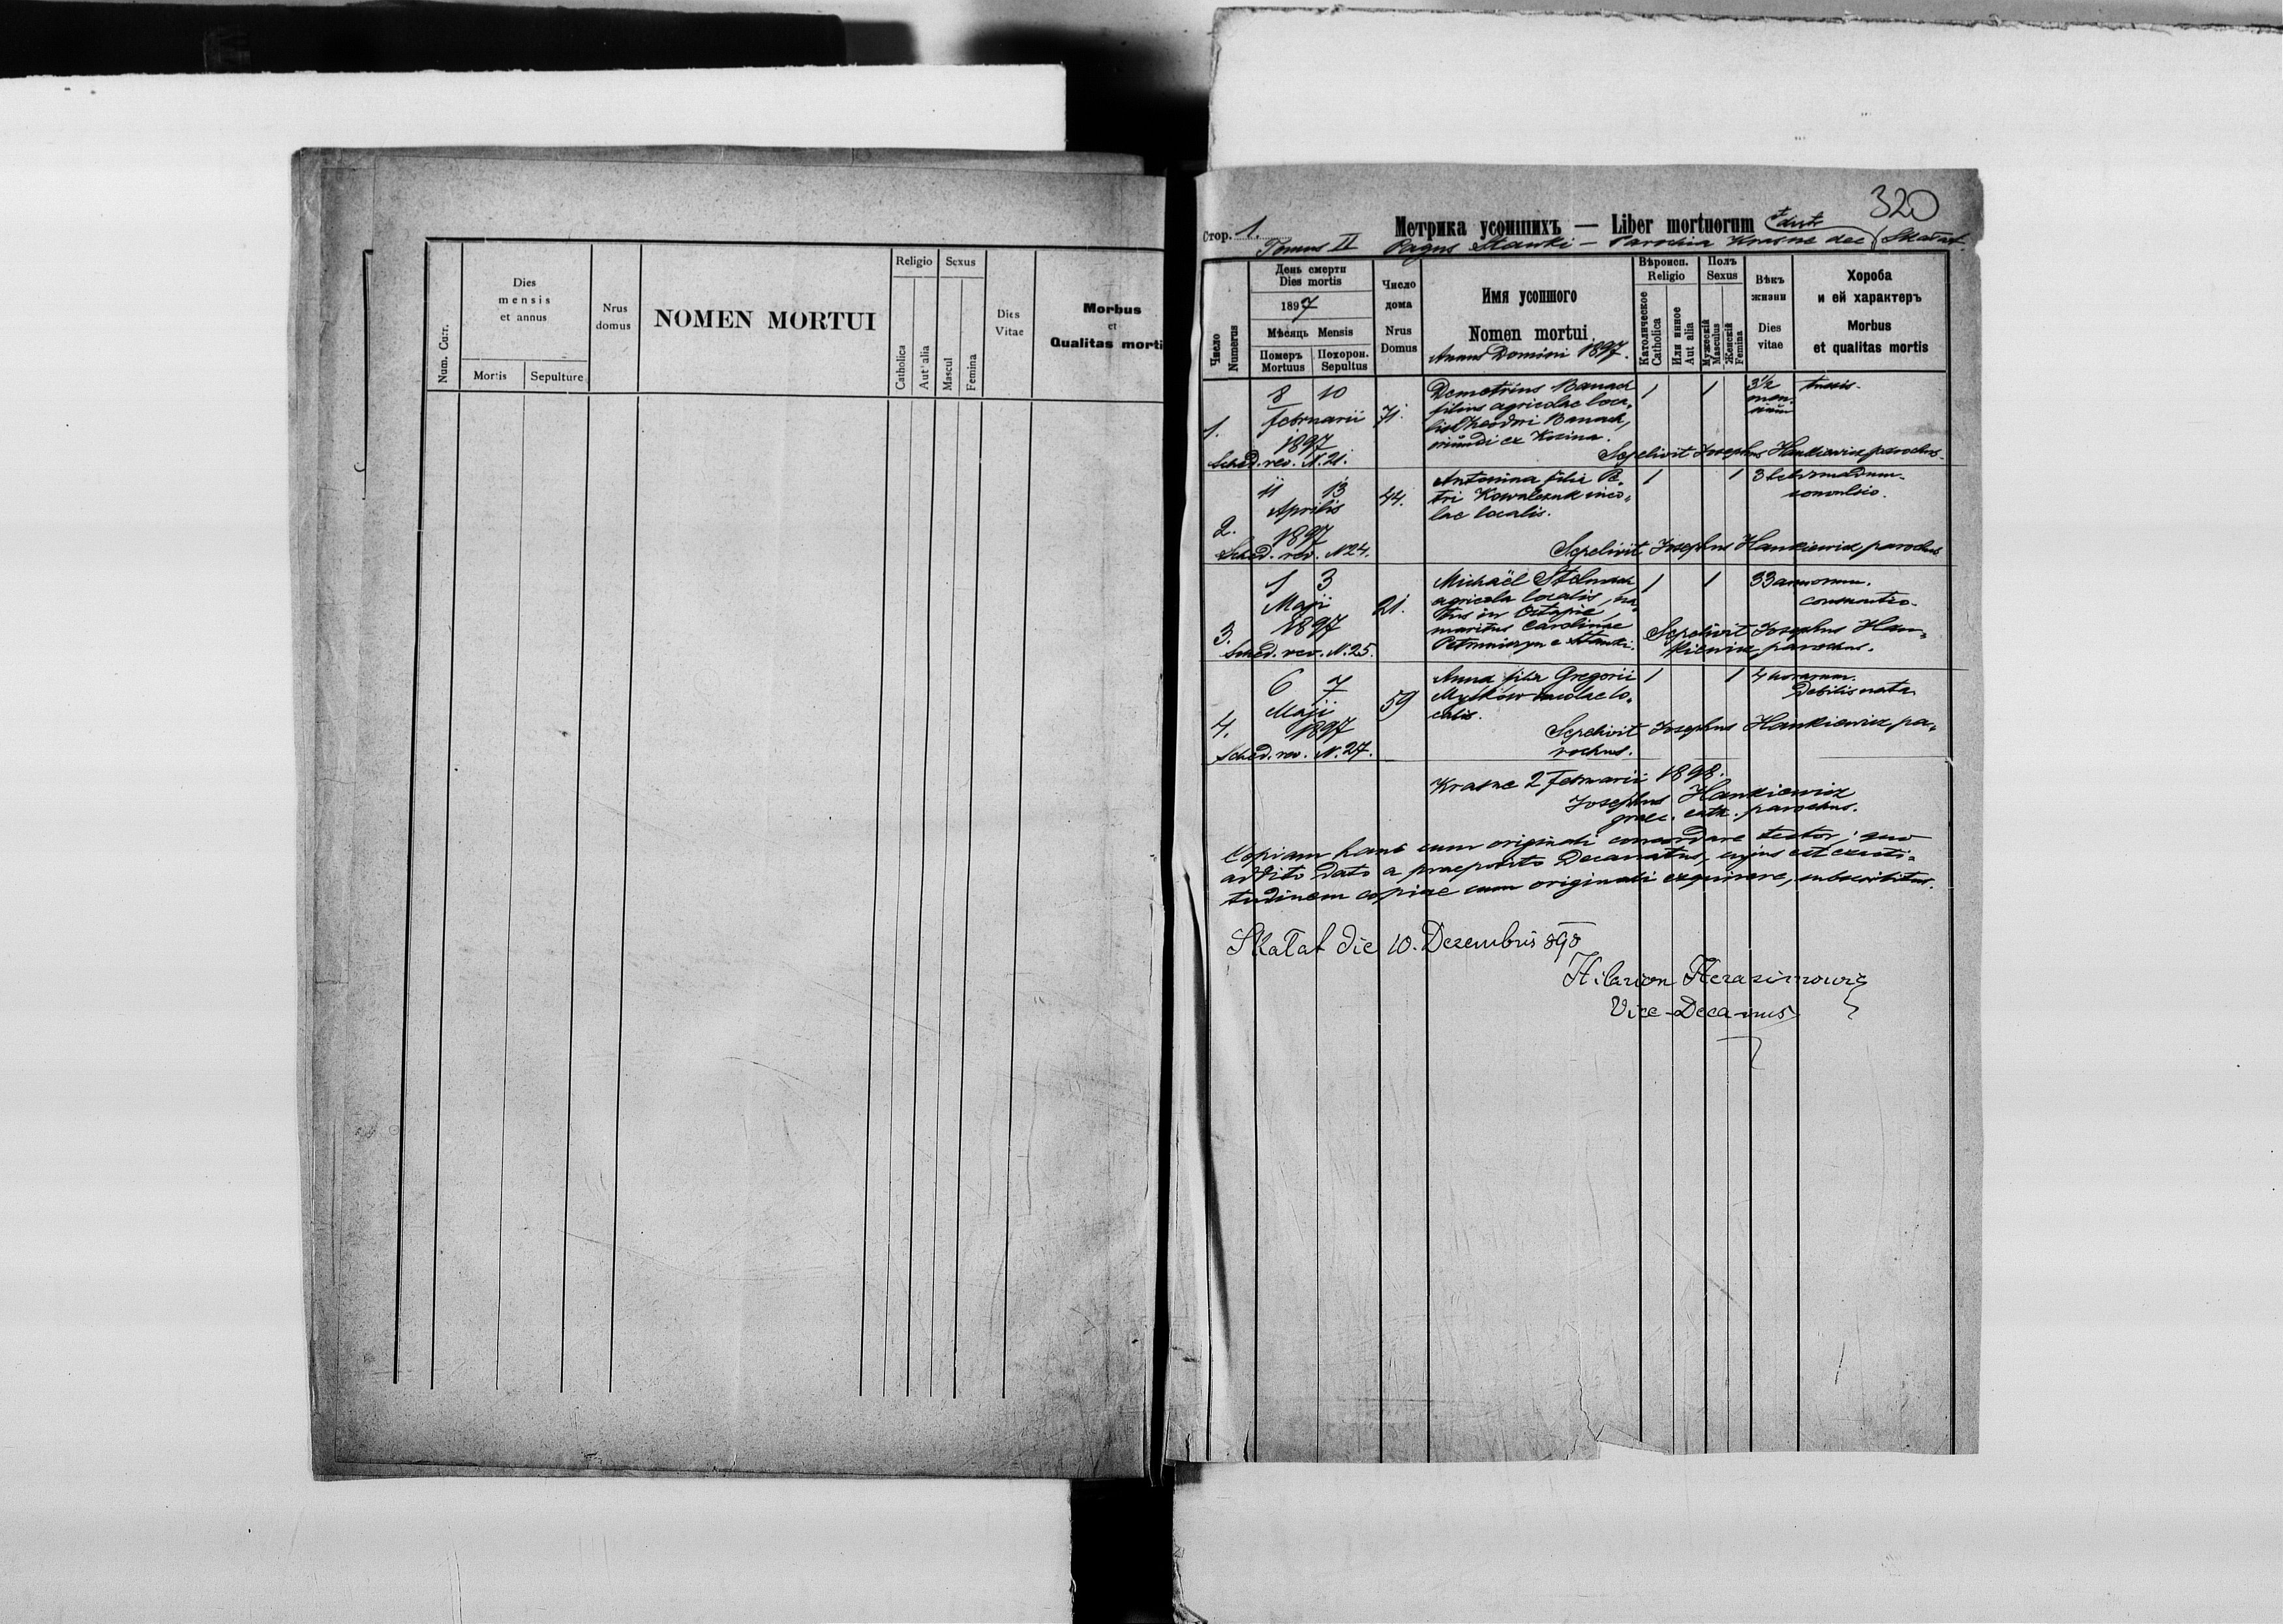 Num. Curr.
Dies
mensis
et annus
Mortis
Sepulture
Nrus
domus
NOMEN MORTUI
Religio
Sexus
Catholica
Aut alia
Mascul
Femina
Dies
Vitae
Morbus
et
Qualitas morti
320
Стор. 1.
Метрика усопшихъ — Liber mortuorum
Tomus II Pagus Stawki — Parochia Krasne dec Skałat.
Число
Numerus
День смерти
Dies mortis
1897
Мѣсяць Mensis
Померъ
Mortuus
Похорон.
Sepultus
Число
дома
Nrus
Domus
Имя усопшого
Nomen mortui
Annus Domini 1897.
Вѣроисп.
Religio
Католическое
Catholica
Или инное
Aut alia
Полъ
Sexus
Мужескій
Masculus
Женскій
Femina
Вѣкъ
жизни
Dies
vitae
Хороба
и ей характеръ
Morbus
et qualitas mortis
1. 8 10 februarii 1897 71. Demetrius Banach 1 1 3½ tussis.
filius agricolae loca-
lis Theodori Banach,
oriundi ex Kozina.
Sched. rev. N. 21. Sepelivit Josephus Hankiewicz parochus.
2. 11 13 Aprilis 1897 44. Antonina filia Pe- 1 1 3 hebdomadum.
tri Kowalczuk inco- convulsio.
lae localis.
Sched. rev. N 24. Sepelivit Josephus Hankiewicz parochus
3. 1 3 Maji 1897 21. Michaël Stelmach 1 1 33 annorum.
agricola localis, na-
tus in Ostapie,
maritus Carolinae
e Stawki.
Sched. rev. N. 25. Sepelivit Josephus Han-
kiewicz parochus.
4. 6 7 Maji 1897 59 Anna filia Gregorii 1 1 4 horarum.
Mytkow incolae lo- Debilis nata
calis.
Sepelivit Josephus Hankiewicz pa-
rochus.
Sched. rev. N. 27.
Krasne 2 februarii 1898.
Josephus Hankiewicz
graec. cath. parochus.
Copiam hanc cum originali concordare testor,
dato a praeposito Decanatus, cujus est exacti-
tudinem copiae cum originali exquirere, subscribitur.
Skałat die 10. Dezembris 898
Hilarion Herasimowicz
Vice-Decanus